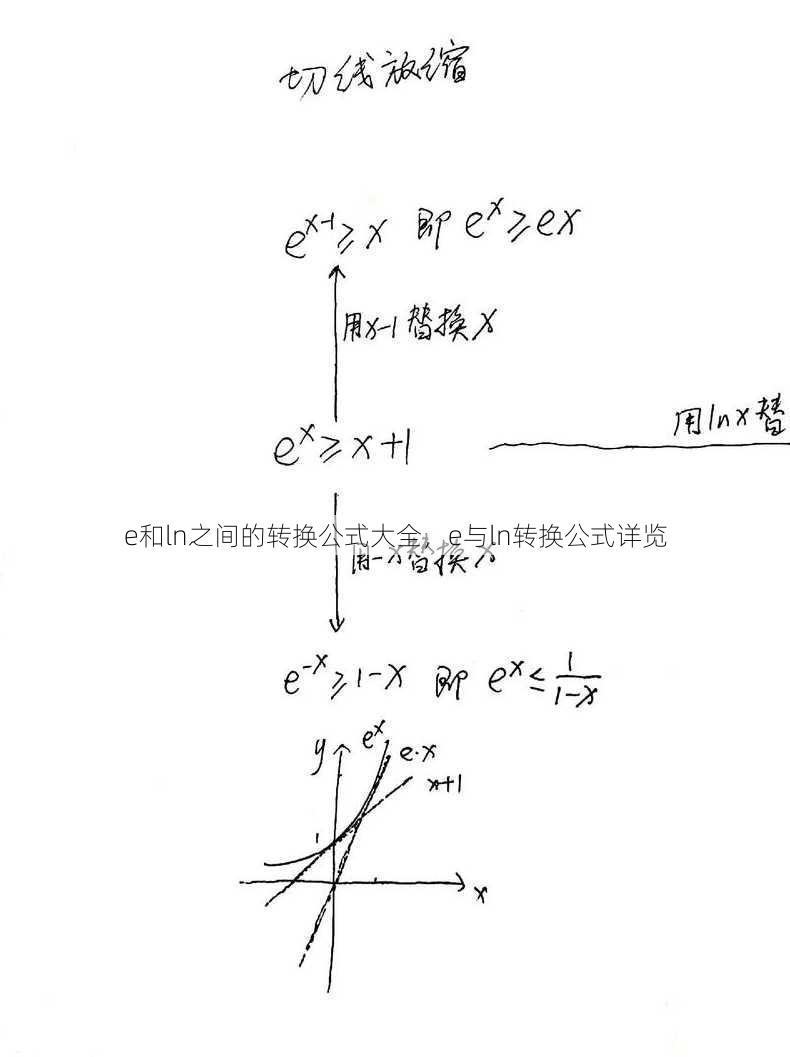 切线放缩
e^{x-1}≥x 即 e^x≥ex
用x-1替换x
用lnx替
e^x≥x+1
e和ln之间的转换公式大全，e与ln转换公式详览
用-x替换x
e^{-x}≥1-x 即 e^x≤\frac{1}{1-x}
y e^x
e·x
x+1
1
x